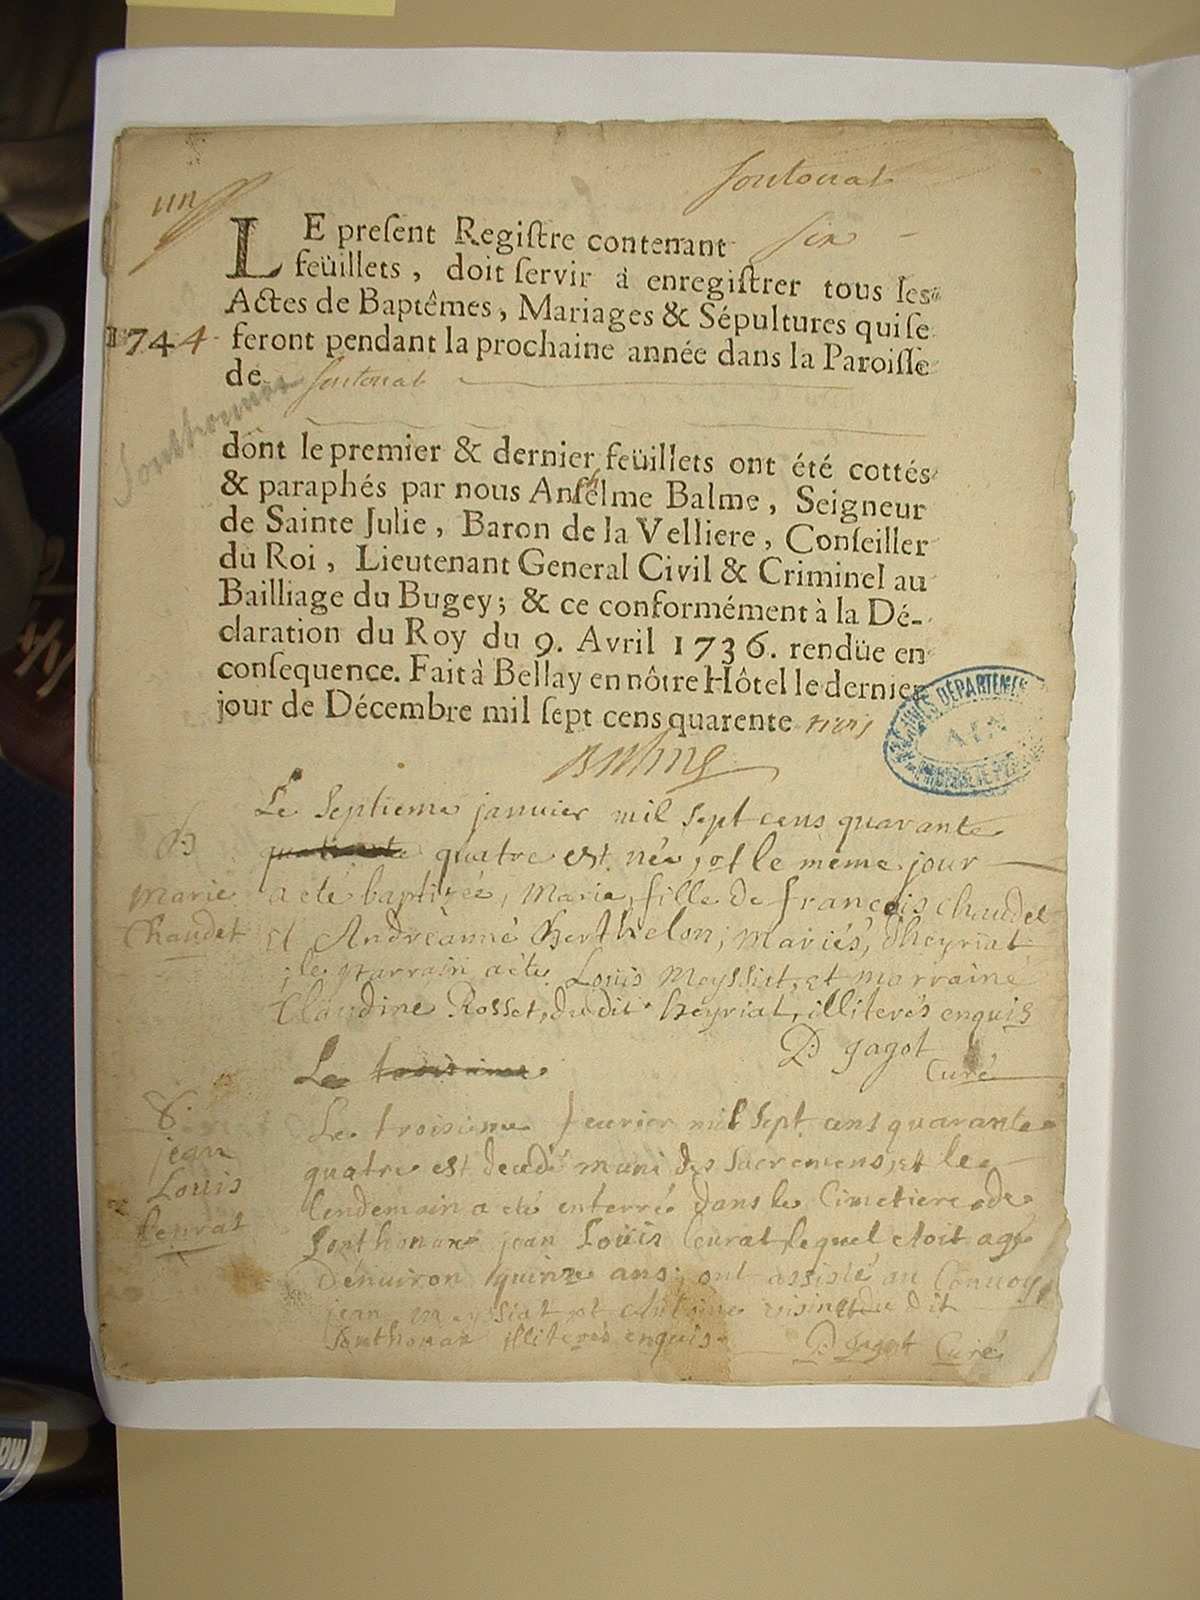 un
soutonat
LE present Registre contenant six
feüillets, doit servir à enregistrer tous les
Actes de Baptêmes, Mariages & Sépultures qui se
1744 feront pendant la prochaine année dans la Paroisse
de soutonat
Sonthonnax
dont le premier & dernier feüillets ont été cottés
& paraphés par nous Anthelme Balme, Seigneur
de Sainte Julie, Baron de la Velliere, Conseiller
du Roi, Lieutenant General Civil & Criminel au
Bailliage du Bugey; & ce conformément à la Dé-
claration du Roy du 9. Avril 1736. rendüe en
consequence. Fait à Bellay en nôtre Hôtel le dernier
jour de Décembre mil sept cens quarente trois
Balme
ARCHIVES DÉPARTEMENTALES
AIN
Le Septieme janvier mil sept cens quarante
B quatre est née, et le même jour
Marie a eté baptizée, Marie, fille de françois chaudet
Chaudet et Andréanne Berthelon; Mariés, d'heyriat
; le parrain a eté Louis Meyssiat, et marraine
Claudine Rosset, du dit heyriat, illiterés enquis
D: Jagot
Curé
Le troisieme
S: Le troisieme fevrier mil sept cens quarante
jean quatre est decedé muni des sacremens, et le
Louis lendemain a eté enterré dans le Cimetiere de
Leurat Sonthonax jean Louis Leurat lequel etoit agé
d'environ quinze ans; ont assisté au Convoy
jean meyssiat et Antoine du dit
Sonthonax illiterés enquis. D: Jagot Curé